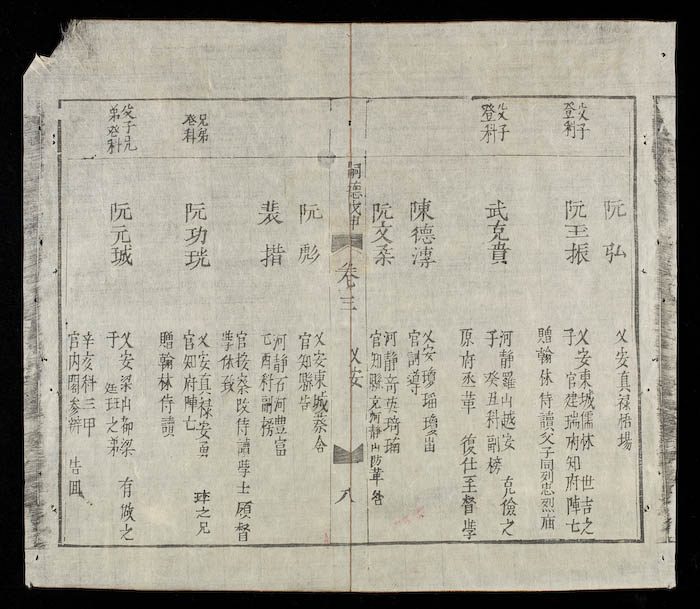 阮弘
乂安真禄梧場
父子
登科
阮玉振
乂安東城儒林 世吉之
子 官建瑞府知府陣亡
贈翰林侍讀父子同列忠烈庙
父子
登科
武克賁
河静羅山越安 克儉之
子 癸丑科副榜
原府丞革 復仕至督學
陳德漙
乂安瓊瑠瓊
官訓導
阮文柔
河静竒英琦
官知縣
嗣德戊申
卷三 乂安
八
阮彪
乂安東城
官知縣告
裴措
河静石河豐富
乙酉科副榜
官按察改侍講學士 領督
學休致
兄弟
登科
阮功珖
乂安真禄安勇 之兄
官知府陣亡
贈翰林侍讀
父子兄
弟登科
阮元珹
乂安梁山 有做之
子 廷珏之弟
辛亥科三甲
官内閣参辦 告回